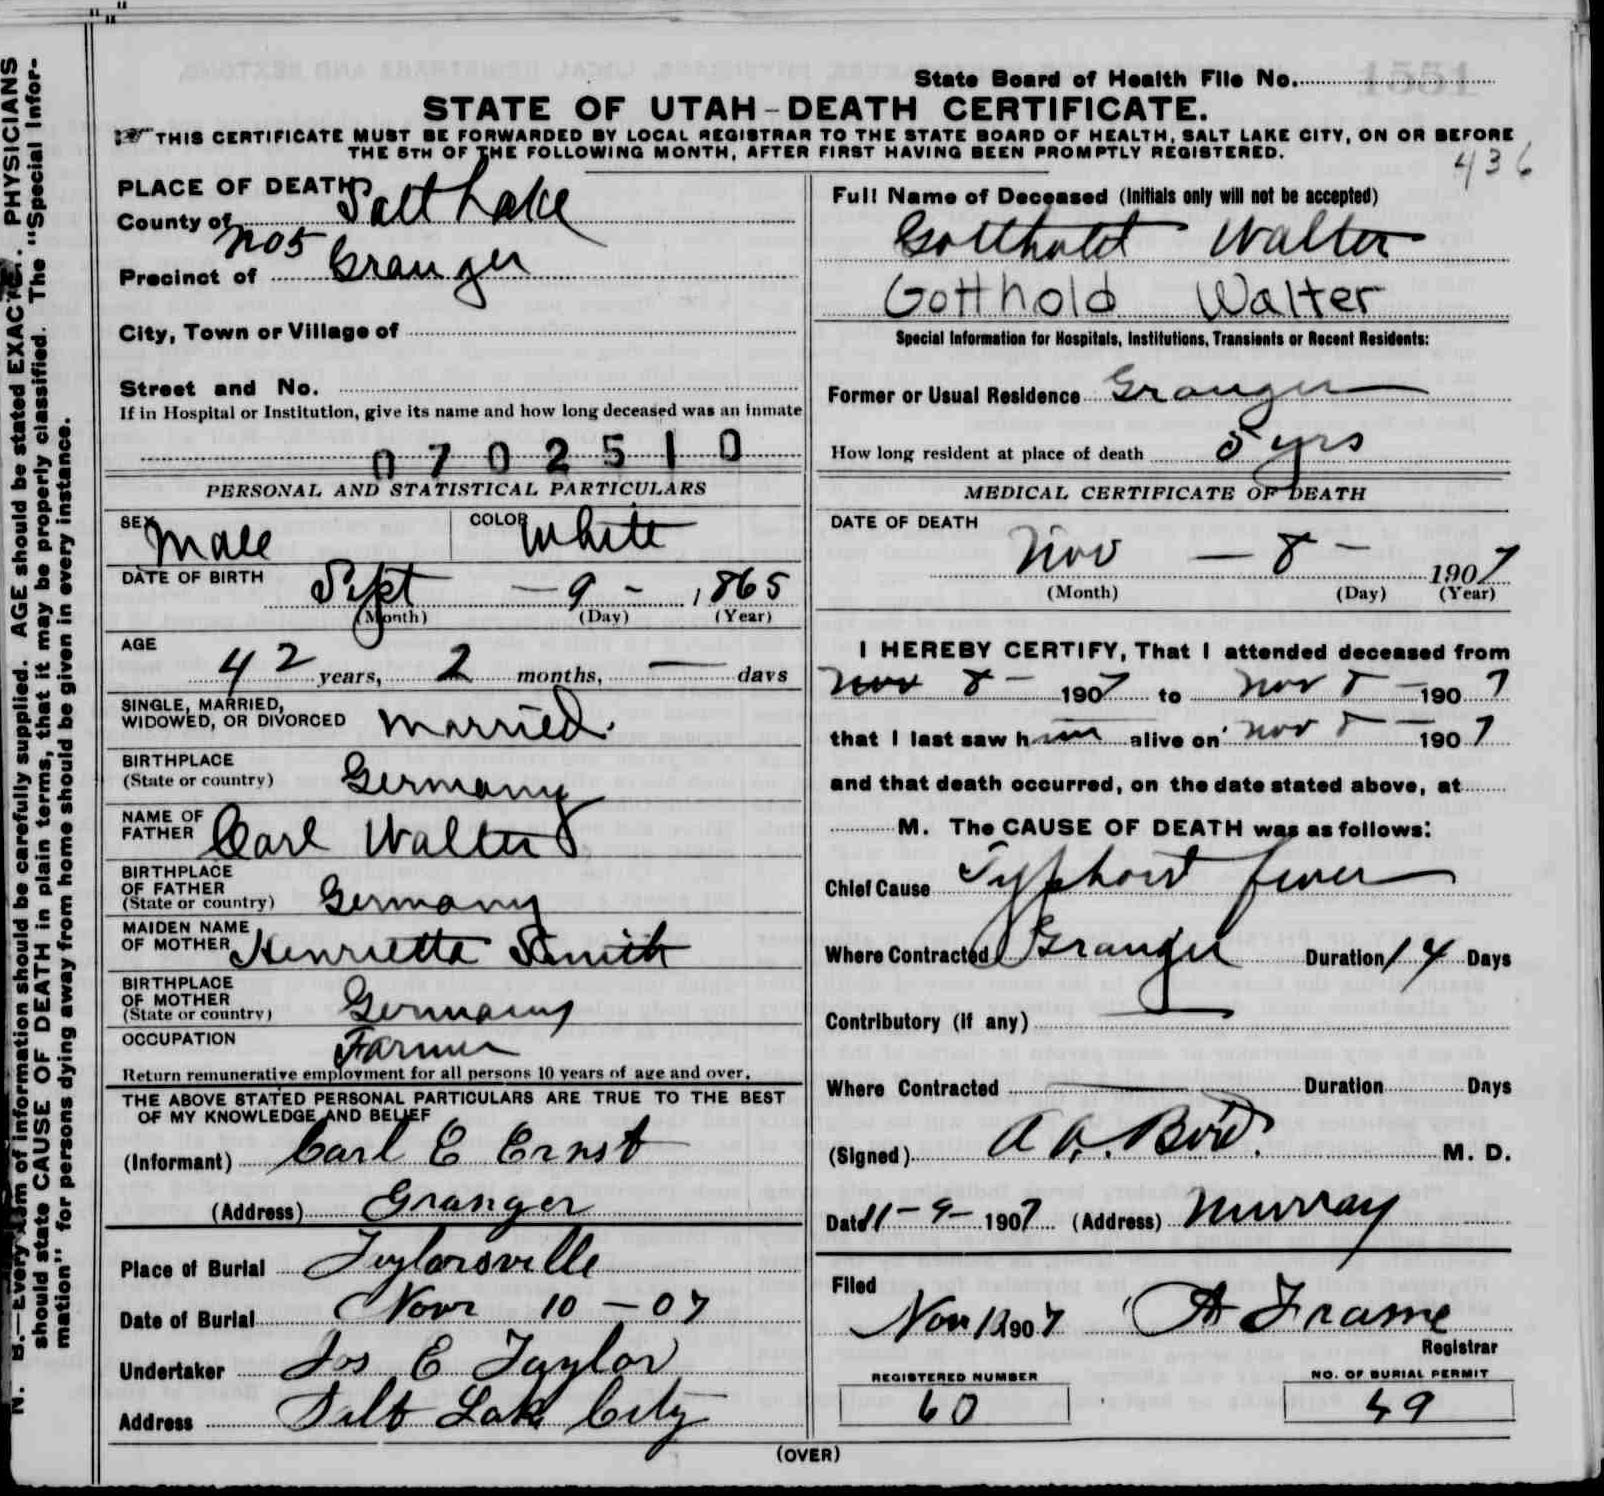 State Board of Health File No.
STATE OF UTAH-DEATH CERTIFICATE.
THIS CERTIFICATE MUST BE FORWARDED BY LOCAL REGISTRAR TO THE STATE BOARD OF HEALTH, SALT LAKE CITY, ON OR BEFORE
THE 5TH OF THE FOLLOWING MONTH, AFTER FIRST HAVING BEEN PROMPTLY REGISTERED.
436
PLACE OF DEATH
County of Salt Lake
No 5
Precinct of Granger
City, Town or Village of
Street and No.
If in Hospital or Institution, give its name and how long deceased was an inmate
0702510
PERSONAL AND STATISTICAL PARTICULARS
SEX Male COLOR White
DATE OF BIRTH Sept - 9 - 1865
(Month) (Day) (Year)
AGE 42 years, 2 months, — days
SINGLE, MARRIED,
WIDOWED, OR DIVORCED Married.
BIRTHPLACE
(State or country) Germany
NAME OF
FATHER Carl Walter
BIRTHPLACE
OF FATHER
(State or country) Germany
MAIDEN NAME
OF MOTHER Henrietta Smith
BIRTHPLACE
OF MOTHER
(State or country) Germany
OCCUPATION Farmer
Return remunerative employment for all persons 10 years of age and over.
THE ABOVE STATED PERSONAL PARTICULARS ARE TRUE TO THE BEST
OF MY KNOWLEDGE AND BELIEF
(Informant) Carl E Ernst
(Address) Granger
Place of Burial Taylorsville
Date of Burial Novr 10 - 07
Undertaker Jos E Taylor
Address Salt Lake City
Full Name of Deceased (Initials only will not be accepted)
Gotthold Walter
Gotthold Walter
Special Information for Hospitals, Institutions, Transients or Recent Residents:
Former or Usual Residence Granger
How long resident at place of death 5 yrs
MEDICAL CERTIFICATE OF DEATH
DATE OF DEATH
Nov - 8 - 1907
(Month) (Day) (Year)
I HEREBY CERTIFY, That I attended deceased from
Nov 8 - 1907 to Nov 8 - 1907
that I last saw him alive on Nov 8 - 1907
and that death occurred, on the date stated above, at
M. The CAUSE OF DEATH was as follows:
Chief Cause Typhoid fever
Where Contracted Granger Duration 14 Days
Contributory (if any)
Where Contracted Duration Days
(Signed) Bird. M. D.
Date 11-9-1907 (Address) Murray
Filed
Nov 12 1907 A Frame
Registrar
REGISTERED NUMBER
60
NO. OF BURIAL PERMIT
59
(OVER)
N. B.—Every item of information should be carefully supplied. AGE should be stated EXACTLY. PHYSICIANS
should state CAUSE OF DEATH in plain terms, that it may be properly classified. The "Special Infor-
mation" for persons dying away from home should be given in every instance.